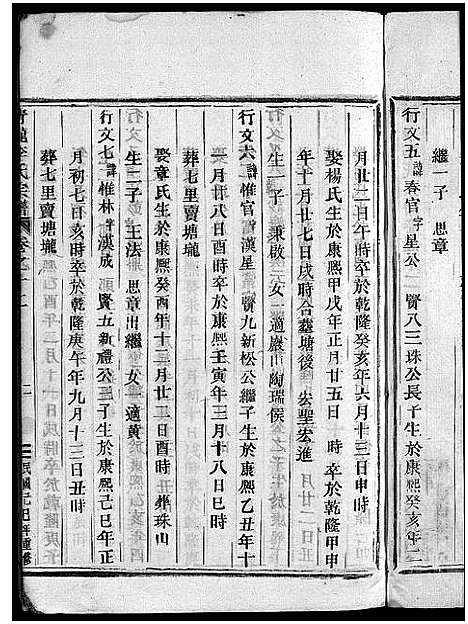 繼一子 思章
行文五 諱春官 字星公 一賢八三珠公長子生於康熙癸亥年二
月廿二日午時卒於乾隆癸亥年六月十三日申時
娶楊氏生於康熙甲戌年正月廿五日 時 卒於乾隆甲申
年十月廿七日戌時合塟塘後 宏聖宏進
生一子 秉啟 女二 適巖山陶瑞侯
行文六 諱惟官 字漢星 賢九新松公繼子生於康熙乙丑年十
一月廿八日酉時卒於康熙壬寅年三月十八日巳時
葬七里賣塘壠
娶章氏生於康熙癸酉年十二月廿二日酉時 葬珠山
生二子 玉法 思章出繼 女一適黃
行文七 諱惟林 字漢成 賢五新禮公三子生於康熙己巳年正
月初七日亥時卒於乾隆庚午年九月十三日丑時
葬七里賣塘壠
李氏宗譜